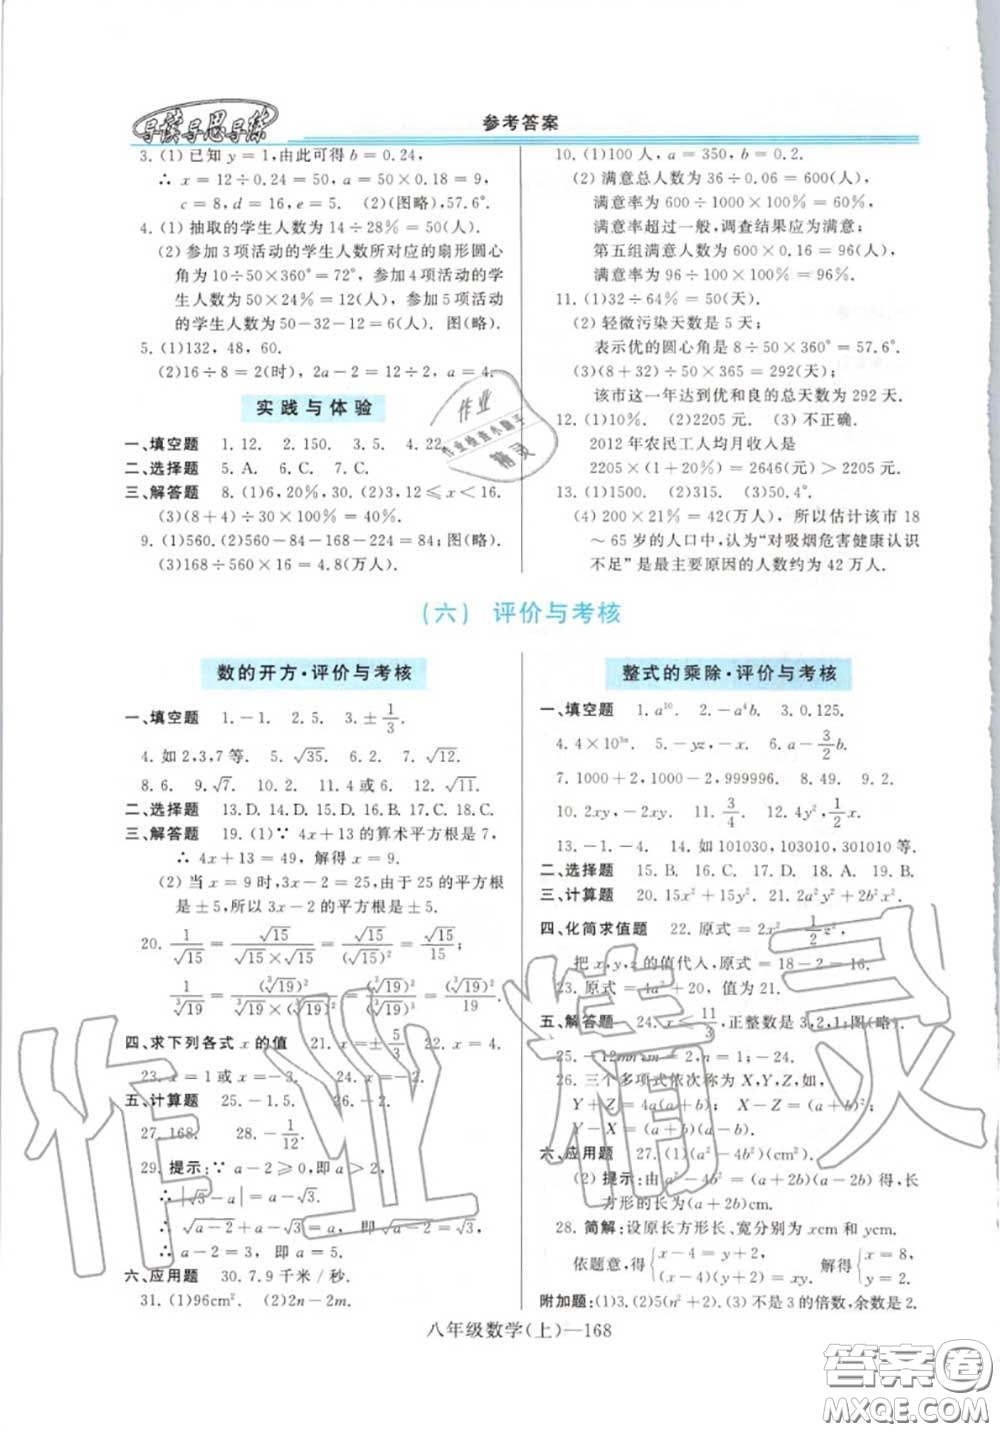 导读导思导练
参考答案
3. (1) 已知 y = 1,由此可得 b = 0.24,
∴ x = 12÷0.24 = 50, a = 50×0.18 = 9,
c = 8, d = 16, e = 5. (2)(图略),57.6°.
4. (1) 抽取的学生人数为 14÷28% = 50(人).
(2) 参加 3 项活动的学生人数所对应的扇形圆心
角为 10÷50×360° = 72°, 参加 4 项活动的学
生人数为 50×24% = 12(人), 参加 5 项活动
的学生人数为 50-32-12 = 6(人). 图(略).
5. (1)132, 48, 60.
(2)16÷8 = 2(时), 2a-2 = 12÷2, a = 4.
实践与体验
一、填空题 1. 12. 2. 150. 3. 5. 4. 22.
二、选择题 5. A. 6. C. 7. C.
三、解答题 8. (1)6, 20%, 30. (2)3, 12 ≤ x < 16.
(3)(8+4)÷30×100% = 40%.
9. (1)560. (2)560-84-168-224 = 84;图(略).
(3)168÷560×16 = 4.8(万人).
10. (1)100 人, a = 350, b = 0.2.
(2) 满意总人数为 36÷0.06 = 600(人),
满意率为 600÷1000×100% = 60%.
满意率超过一般,调查结果应为满意;
第五组满意人数为 600×0.16 = 96(人),
满意率为 96÷100×100% = 96%.
11. (1)32÷64% = 50(天).
(2) 轻微污染天数是 5 天;
表示优的圆心角是 8÷50×360° = 57.6°.
(3)(8+32)÷50×365 = 292(天);
该市这一年达到优和良的总天数为 292 天.
12. (1)10%. (2)2205 元. (3) 不正确.
2012 年农民工人均月收入是
2205×(1+20%) = 2646(元) > 2205 元.
13. (1)1500. (2)315. (3)50.4°.
(4) 200×21% = 42(万人), 所以估计该市 18
~ 65 岁的人口中,认为“对吸烟危害健康认识
不足”是最主要原因的人数约为 42 万人.
(六) 评价与考核
数的开方·评价与考核
一、填空题 1. -1. 2. 5. 3. ±1/3.
4. 如 2,3,7 等. 5. √35. 6. 2. 7. √12.
8. 6. 9. √7. 10. 2. 11. 4 或 6. 12. √11.
二、选择题 13. D. 14. D. 15. D. 16. B. 17. C. 18. C.
三、解答题 19. (1)∵ 4x+13 的算术平方根是 7,
∴ 4x+13 = 49, 解得 x = 9.
(2) 当 x = 9 时, 3x-2 = 25,由于 25 的平方根
是 ±5,所以 3x-2 的平方根是 ±5.
20. 1/√15 = √15/(√15×√15) = √15/(√15)² = √15/15;
1/∛19 = (∛19)²/(∛19×(∛19)²) = (∛19)²/(∛19)³ = (∛19)²/19.
四、求下列各式 x 的值 21. x = ±5/3. 22. x = 4.
23. x = 1 或 x = -3. 24. x = -
五、计算题 25. -1.5. 26. -2.
27. 168. 28. -1/12.
29. 提示:∵ a-2 ≥ 0,即 a > 2,
∴ |√3-a| = a-√3.
∴ √(a-2)+a-√3 = a, 即 √(a-2) = √3,
∴ a-2 = 3, 即 a = 5.
六、应用题 30. 7.9 千米/秒.
31. (1)96cm². (2)2n-2m.
整式的乘除·评价与考核
一、填空题 1. a¹⁰. 2. -a⁴b. 3. 0.125.
4. 4×10³ᵃ. 5. -yz, -x. 6. a-3/2b.
7. 1000+2, 1000-2, 999996. 8. 49. 9. 2.
10. 2xy, -2xy. 11. 3/4. 12. 4y², 1/2x.
13. -1. -4. 14. 如 101030, 103010, 301010 等.
二、选择题 15. B. 16. C. 17. D. 18. A. 19. B.
三、计算题 20. 15x²+15y². 21. 2a²y²+2b²x².
四、化简求值题 22. 原式 = 2x²-1/2z²,
把 x,y,z 的值代人,原式 = 18-2 = 16.
23. 原式 = 4a²+20, 值为 21.
五、解答题 24. x ≤ 11/3,正整数是 3,2,1;图(略).
25. -12mn, m = 2, n = 1; -24.
26. 三个多项式依次称为 X,Y,Z,如,
Y+Z = 4a(a+b) X-Z = (a+b)²,
Y-X = (a+b)(a-b).
六、应用题 27. (1)(a²-4b²)(cm²).
(2) 提示:由 a²-4b² = (a+2b)(a-2b) 得,长
方形的长为(a+2b)cm.
28. 简解:设原长方形长、宽分别为 xcm 和 ycm.
依题意,得{x-4 = y+2, (x-4)(y+2) = xy. 解得{x = 8, y = 2.
附加题:(1)3. (2)5(n²+2). (3) 不是 3 的倍数,余数是 2.
八年级数学(上)—168
作业
作业检查小助手
精灵
作业精灵
答案圈
MXQE.COM